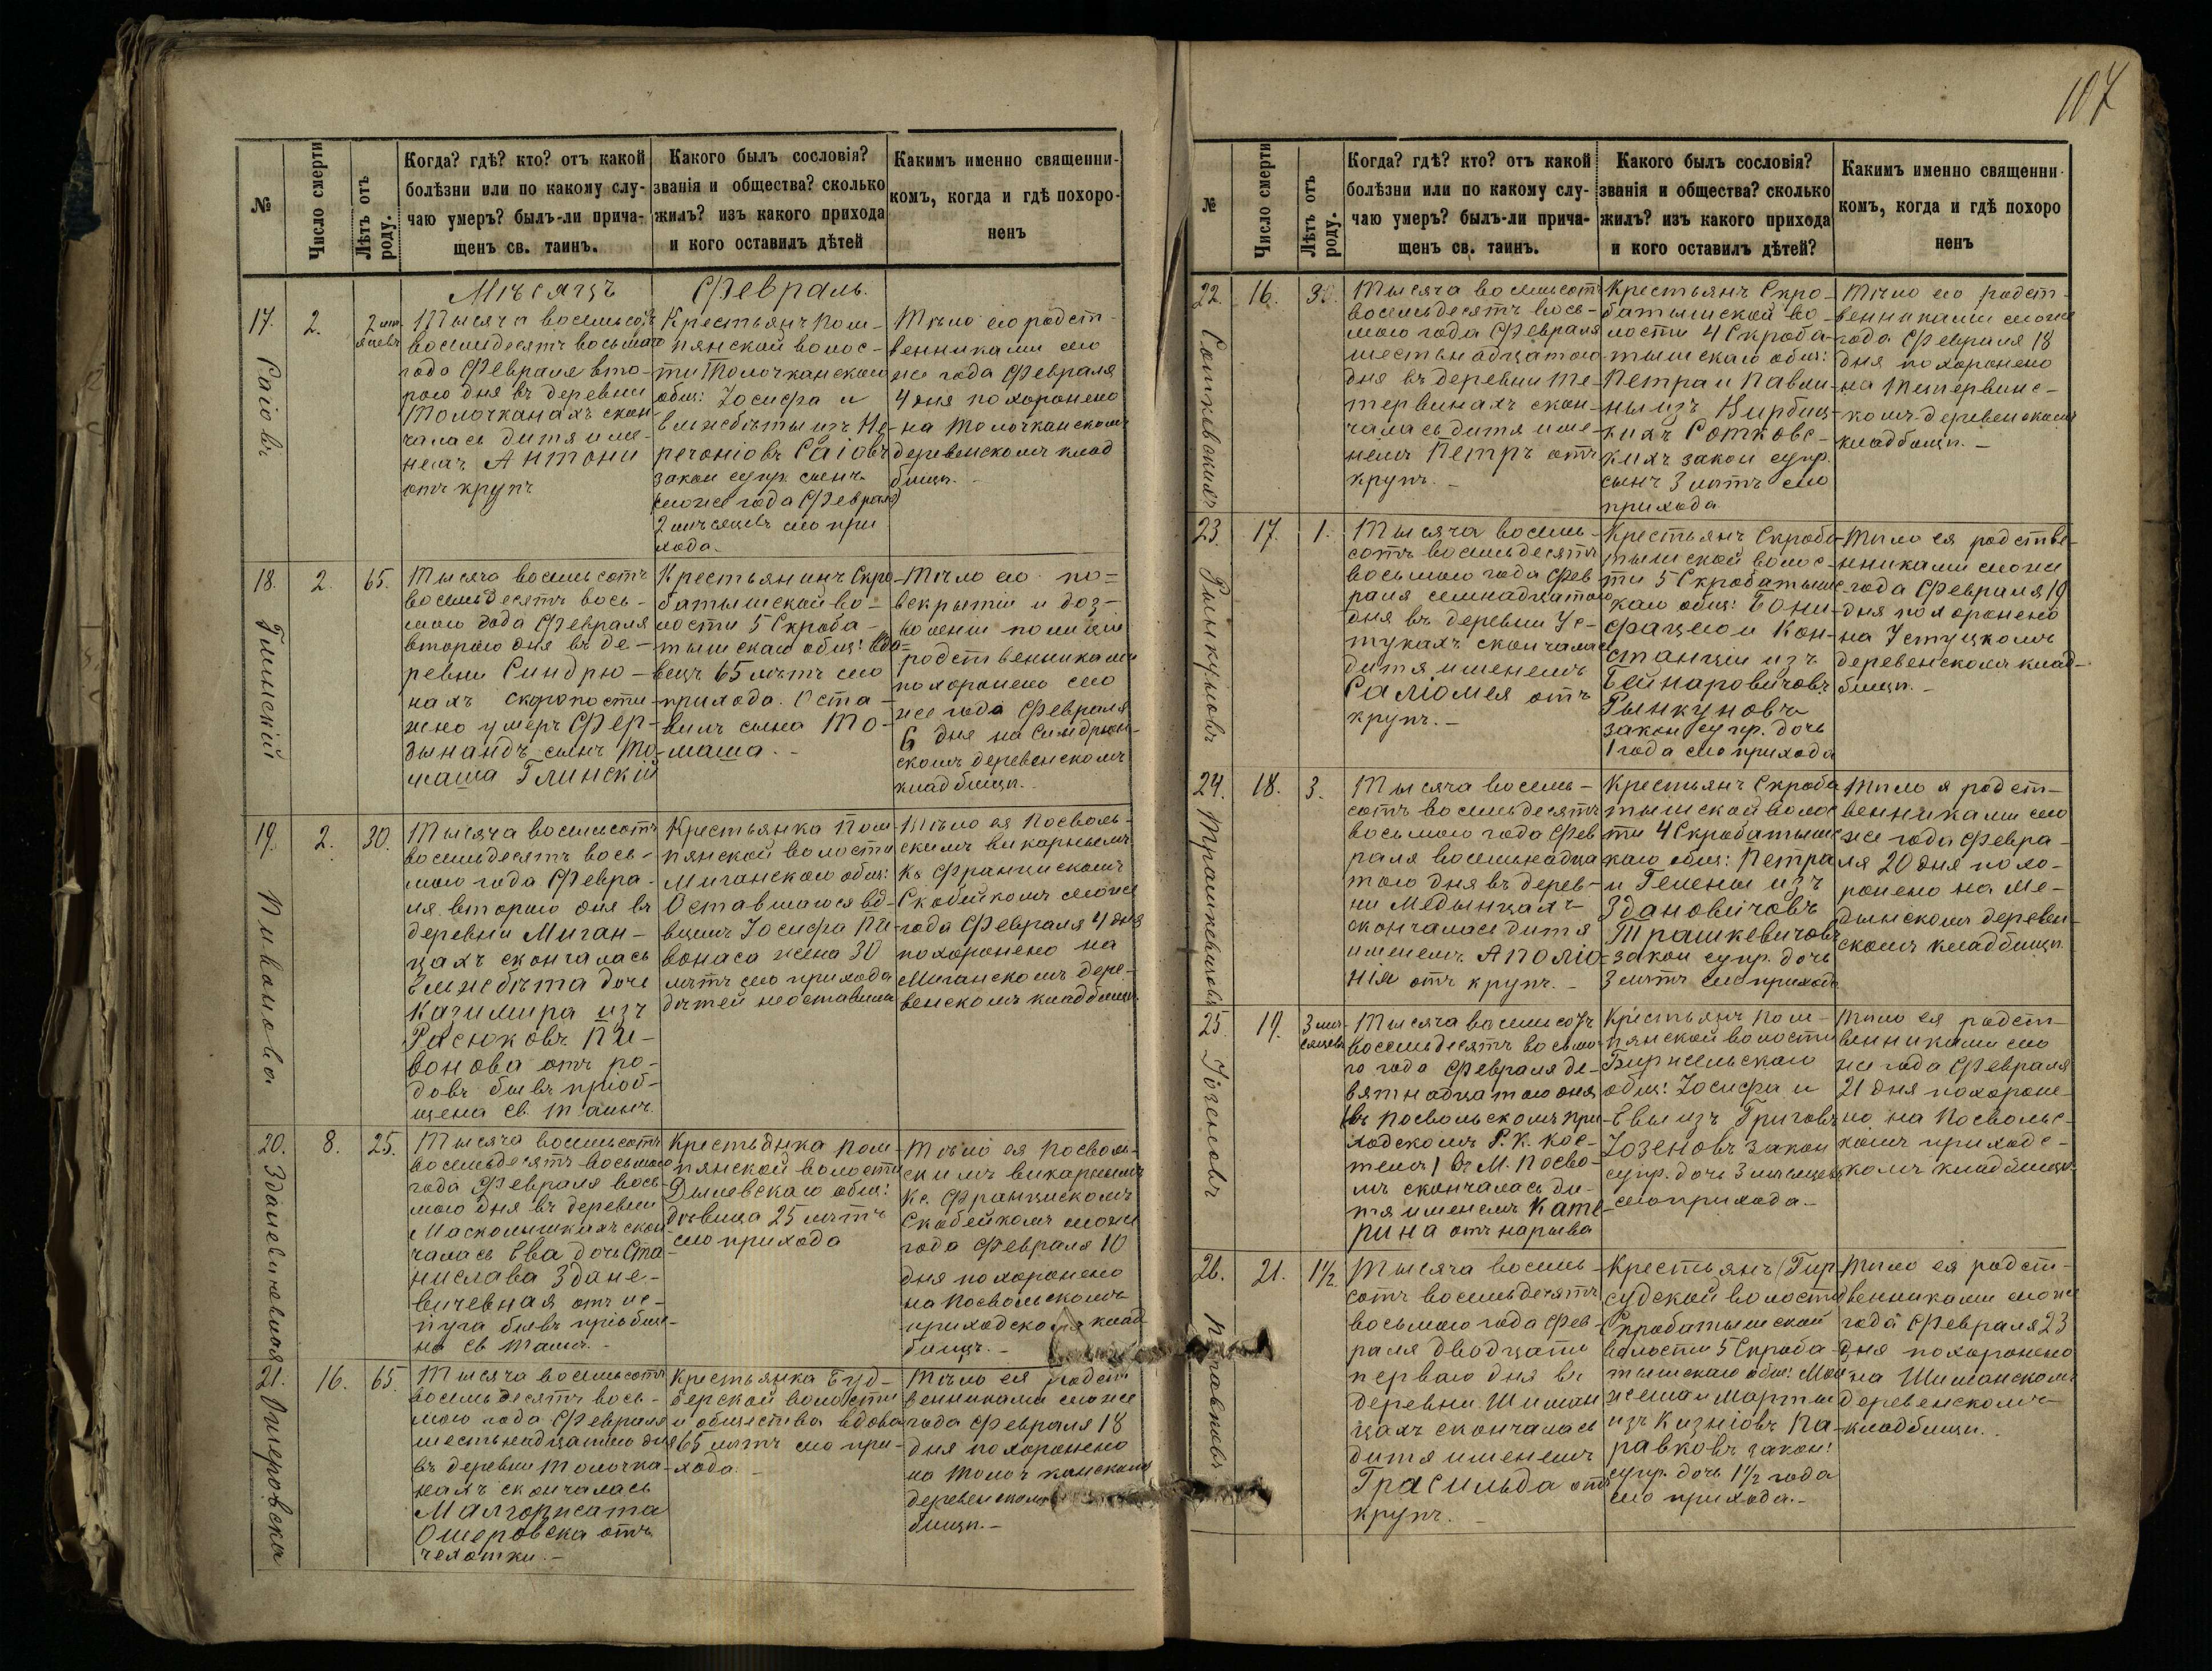 107
№
Число смерти
Лѣтъ отъ роду.
Когда? гдѣ? кто? отъ какой
болѣзни или по какому слу-
чаю умеръ? былъ-ли прича-
щенъ св. таинъ.
Какого былъ сословія?
званія и общества? сколько
жилъ? изъ какого прихода
и кого оставилъ дѣтей
Каким­ъ именно священни-
комъ, когда и гдѣ похоро-
ненъ
Мѣсяцъ Февраль.
17.
Саіовъ
2.
Тысяча восемьсотъ
восемьдесятъ восьмаго
года Февраля вто-
рого дня въ деревни
Толочканахъ скон-
чалась дитя име-
немъ Антони
отъ крупъ
Крестьянъ Пом-
пянской волос-
ти Толочканского
общ: Іосифа и
Ельжбѣты изъ
Саіовъ
закон супр. сынъ
сегоже года Февраля
2 мѣсяцевъ сего при
хода.
Тѣло его родст-
венниками сего
же года Февраля
4 дня похоронено
на Толочканскомъ
деревенскомъ клад
бищѣ.
18.
Глинскій
2.
65.
Тысяча восемьсотъ
восемьдесятъ вось-
мого года Февраля
второго дня въ де-
ревни Синдрю-
нахъ скоропости-
жно умеръ Фер-
дынандъ сынъ То-
маша Глинскій
Крестьянинъ Скро-
батышской во-
лости 5 Скроба-
тышскаго общ: вдо-
вецъ 65 лѣтъ сего
прихода. Оста-
вилъ сына То-
маша.
Тѣло его по
вскрытіи и доз-
воленіи полиціи
родственниками
похоронено сего
же года Февраля
6 дня на Синдрюн-
скомъ деревенскомъ
кладбищѣ.
19.
Пивонова
2.
30.
Тысяча восемьсотъ
восемьдесятъ вось-
мого года Февра-
ля второго дня въ
деревни Миган-
цахъ скончалась
Ельжбѣта дочь
Казимира изъ
Расюковъ Пи-
вонова отъ ро-
довъ бывъ пріоб-
щена св. таинъ.
Крестьянка Пом
пянской волости
Миганского общ:
Оставшагося вд-
вцемъ Іосифа Пи-
вонаса жена 30
лѣтъ сего прихода
дѣтей неоставила
Тѣло ея Посволь-
скимъ викарнымъ
Кс Францискомъ
Скобейкомъ сегоже
года Февраля 4 дня
похоронено на
Миганскомъ дере-
венскомъ кладбищѣ.
20.
Зданевичевная
8.
25.
Тысяча восемьсотъ
восемьдесятъ восьмого
года Февраля вось-
мого дня въ деревни
Масколишкахъ скон
чалась Ева дочь Ста
нислава Здане-
вичевная отъ ис-
пуга бывъ пріобще-
на св Таинъ.
Крестьянка Пом
пянской волости
Дылевскаго общ:
дѣвица 25 лѣтъ
сего прихода
Тѣло ея Посволь-
скимъ викарнымъ
Кс. Францискомъ
Скобейкомъ сегоже
года Февраля 10
дня похоронено
на Посвольскомъ
приходскомъ клад
бищѣ.
21.
Ошеровска
16.
65.
Тысяча восемьсотъ
восемьдесятъ вось-
мого года Февраля
шестьнадцатого дня
въ деревни Толочка-
нахъ скончалась
Малгоржата
Ошеровска отъ
чехотки.
Крестьянка
волости
и общества вдова
65 лѣтъ сего при-
хода.
Тѣло ея родст
венниками сегоже
года Февраля 18
дня похоронено
на Толочканскомъ
деревенскомъ
бищѣ.
№
Число смерти
Лѣтъ отъ роду.
Когда? гдѣ? кто? отъ какой
болѣзни или по какому слу-
чаю умеръ? былъ-ли прича-
щенъ св. таинъ.
Какого былъ сословія?
званія и общества? сколько
жилъ? изъ какого прихода
и кого оставилъ дѣтей?
Какимъ именно священни-
комъ, когда и гдѣ похоро
ненъ
22.
Сотковскихъ
16.
3.
Тысяча восемьсотъ
восемьдесятъ вось-
мого года Февраля
шестьнадцатого
дня въ деревни Те-
тервинахъ скон-
чалась дитя име-
немъ Петръ отъ
крупъ.
Крестьянъ Скро-
батышской во-
лости 4 Скроба-
тышскаго общ:
Петра и Павли-
ны изъ
Сотковс-
кихъ закон супр.
сынъ 3 лѣтъ сего
прихода
Тѣло его родст-
венниками сегоже
года Февраля 18
дня похоронено
на Тетервинс-
комъ деревенскомъ
кладбищѣ.
23.
Рынкуновъ
17.
1.
Тысяча восемь-
сотъ восемьдесятъ
восьмого года Фев
раля семнадцатого
дня въ деревни Ус-
тукахъ скончалась
дитя именемъ
Саліомея отъ
крупъ.
Крестьянъ Скроба-
тышской волос-
ти 5 Скробатышс-
каго общ: Бони-
фацего и Кон-
станціи изъ
Бейнаровичовъ
Рынкуновъ
закон супр. дочь
1 года сего прихода
Тѣло ея родстве-
нниками сегоже
года Февраля 19
дня похоронено
на Устуцкомъ
деревенскомъ клад-
бищѣ.
24.
Трашкевичовъ
18.
3.
Тысяча восемь-
сотъ восемьдесятъ
восьмого года Фев
раля восемьнадца
того дня въ дерев-
ни Медынцахъ
скончалась дитя
именемъ Аполіо-
нія отъ крупъ.
Крестьянъ Скроба
тышской волос
ти 4 Скробатышс
каго общ: Петра
и Гелены изъ
Здановичовъ
Трашкевичовъ
закон супр. дочь
3 лѣтъ сего прихода
Тѣло я родст-
венниками сего
же года Февра-
ля 20 дня похо-
ронено на Ме-
дынскомъ деревен-
скомъ кладбищѣ
25
Іозеновъ
19.
3 мѣ-
сяцевъ
Тысяча восемьсотъ
восемьдесятъ восьмо-
го года Февраля де-
вятнадцатого дня
(въ Посвольскомъ при
ходскомъ Р. К. кос-
телѣ) въ М. Посво-
лѣ скончалась ди-
тя именемъ Кате-
рина отъ нарыва
Крестьянъ Пом-
пянской волости
общ: Іосифа и
Евы изъ Григовъ
Іозеновъ закон
супр. дочь 3 мѣсяцевъ
сего прихода.
Тѣло ея родст-
венниками сего
же года Февраля
21 дня похороне-
но на Посвольс-
комъ приходс-
комъ кладбищѣ
26.
Паравковъ
21.
1½
Тысяча восемь-
сотъ восемьдесятъ
восьмого года Фев-
раля двадцать
перваго дня въ
деревни Шиман
цахъ скончалась
дитя именемъ
Грасильда отъ
крупъ.
Крестьянъ (Гир-
судской волости
Скробатышской
волости 5 Скроба-
тышскаго общ:
и Марты
изъ Казніовъ Па-
равковъ закон:
супр. дочь 1½ года
сего прихода.
Тѣло ея родст-
венниками сегоже
года Февраля 23
дня похоронено
на Шиманскомъ
деревенскомъ
кладбищѣ.